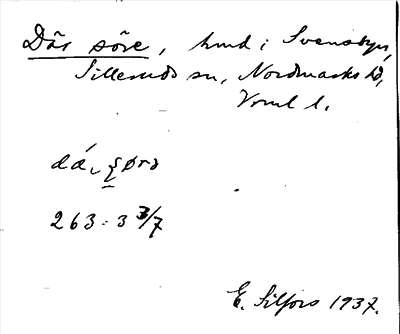 Där söre, hmd i Svensbyn,
Silleruds sn, Nordmarks hd,
Vrml l.
dá
263:3 3/7
E. Silfors 1937.